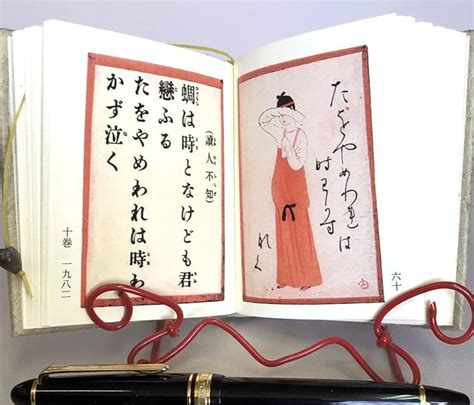 たをやめわれは
時わかす
なく
六十
(讀人不知)
蜩は時となけども君
戀ふる
たをやめわれは時わ
かず泣く
十巻 一九八二